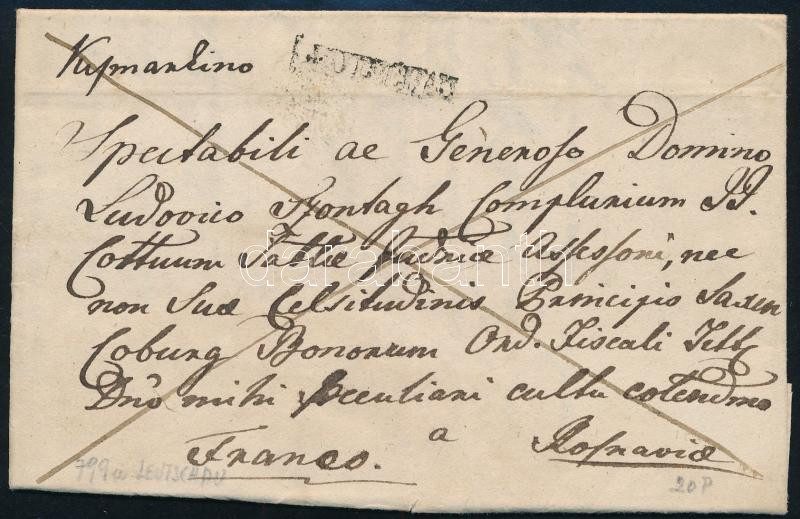 Kesmarkino LEUTSCHAU
Spectabili ac Generoso Domino
Ludovico Szontagh Complurium II.
Cottuum Tablae Judriae Assessori, nec
non Suae Celsitudinis Principis Saxen
Coburg Bonorum Ord. Fiscali Titt
Dno mihi Peculiari cultu colendmo
a
Franco. Rosnaviae
799 a LEUTSCHAU 20P
darabanth